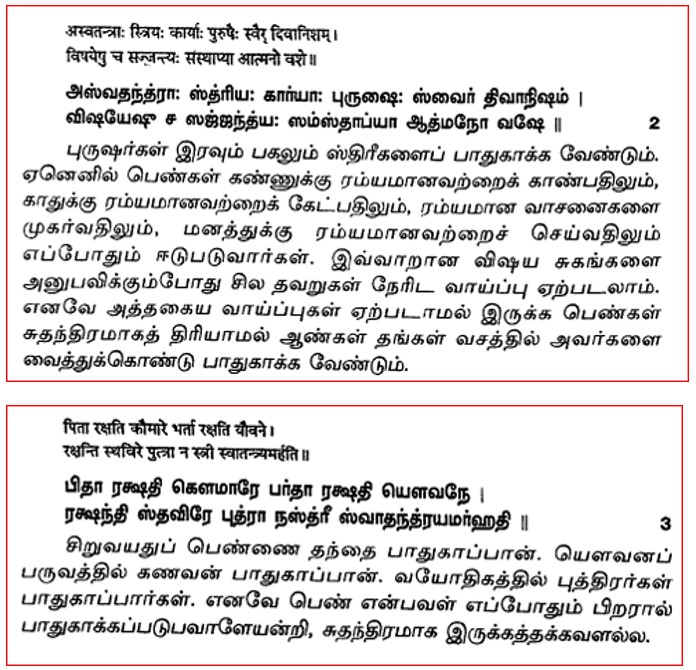 अस्वतन्त्राः स्त्रियः कार्याः पुरुषैः स्वैर् दिवानिशम्।
विषयेषु च सज्जन्त्यः संस्थाप्या आत्मनो वशे॥
அஸ்வதந்த்ரா: ஸ்த்ரிய: கார்யா: புருஷை: ஸ்வைர் திவாநிஷம் |
விஷயேஷு ச ஸஜ்ஜந்த்ய: ஸம்ஸ்தாப்யா ஆத்மநோ வஷே || 2
புருஷர்கள் இரவும் பகலும் ஸ்திரீகளைப் பாதுகாக்க வேண்டும்.
ஏனெனில் பெண்கள் கண்ணுக்கு ரம்யமானவற்றைக் காண்பதிலும்,
காதுக்கு ரம்யமானவற்றைக் கேட்பதிலும், ரம்யமான வாசனைகளை
முகர்வதிலும், மனத்துக்கு ரம்யமானவற்றைச் செய்வதிலும்
எப்போதும் ஈடுபடுவார்கள். இவ்வாறான விஷய சுகங்களை
அனுபவிக்கும்போது சில தவறுகள் நேரிட வாய்ப்பு ஏற்படலாம்.
எனவே அத்தகைய வாய்ப்புகள் ஏற்படாமல் இருக்க பெண்கள்
சுதந்திரமாகத் திரியாமல் ஆண்கள் தங்கள் வசத்தில் அவர்களை
வைத்துக்கொண்டு பாதுகாக்க வேண்டும்.
पिता रक्षति कौमारे भर्ता रक्षति यौवने।
रक्षन्ति स्थविरे पुत्रा न स्त्री स्वातन्त्र्यमर्हति॥
பிதா ரக்ஷதி கௌமாரே பர்தா ரக்ஷதி யௌவநே |
ரக்ஷந்தி ஸ்தவிரே புத்ரா நஸ்த்ரீ ஸ்வாதந்த்ரயமர்ஹதி || 3
சிறுவயதுப் பெண்ணை தந்தை பாதுகாப்பான். யௌவனப்
பருவத்தில் கணவன் பாதுகாப்பான். வயோதிகத்தில் புத்திரர்கள்
பாதுகாப்பார்கள். எனவே பெண் என்பவள் எப்போதும் பிறரால்
பாதுகாக்கப்படுபவாளேயன்றி, சுதந்திரமாக இருக்கத்தக்கவளல்ல.